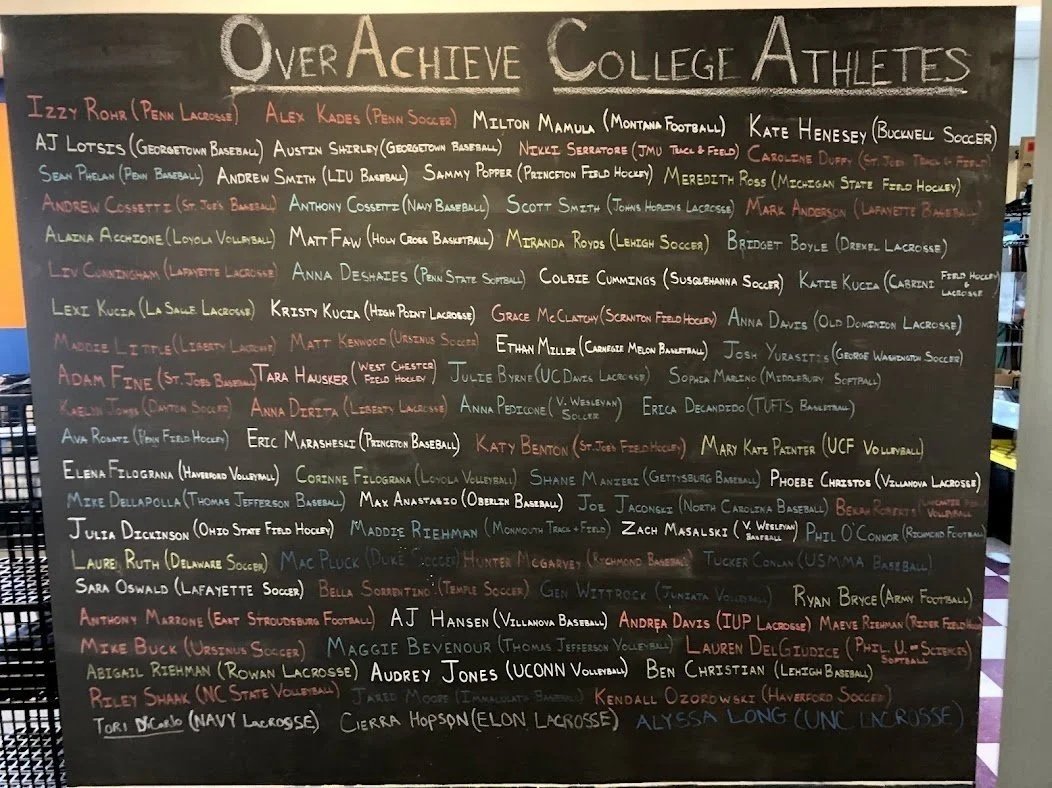 OVER ACHIEVE COLLEGE ATHLETES
IZZY ROHR (PENN LACROSSE) ALEX KADES (PENN SOCCER) MILTON MAMULA (MONTANA FOOTBALL) KATE HENESEY (BUCKNELL SOCCER)
AJ LOTSIS (GEORGETOWN BASEBALL) AUSTIN SHIRLEY (GEORGETOWN BASEBALL) NIKKI SERRATORE (JMU TRACK & FIELD) CAROLINE DUFFY (ST. JOE'S TRACK & FIELD)
SEAN PHELAN (PENN BASEBALL) ANDREW SMITH (LIU BASEBALL) SAMMY POPPER (PRINCETON FIELD HOCKEY) MEREDITH ROSS (MICHIGAN STATE FIELD HOCKEY)
ANDREW COSSETTI (ST. JOE'S BASEBALL) ANTHONY COSSETTI (NAVY BASEBALL) SCOTT SMITH (JOHNS HOPKINS LACROSSE) MARK ANDERSON (LAFAYETTE BASEBALL)
ALAINA ACCHIONE (LOYOLA VOLLEYBALL) MATT FAW (HOLY CROSS BASKETBALL) MIRANDA ROYDS (LEHIGH SOCCER) BRIDGET BOYLE (DREXEL LACROSSE)
LIV CUNNINGHAM (LAFAYETTE LACROSSE) ANNA DESHAIES (PENN STATE SOFTBALL) COLBIE CUMMINGS (SUSQUEHANNA SOCCER) KATIE KUCIA (CABRINI FIELD HOCKEY & LACROSSE
LEXI KUCIA (LA SALLE LACROSSE) KRISTY KUCIA (HIGH POINT LACROSSE) GRACE MCCLATCHY (SCRANTON FIELD HOCKEY) ANNA DAVIS (OLD DOMINION LACROSSE)
MADDIE LITTLE (LIBERTY LACROSSE) MATT KENWOOD (URSINUS SOCCER) ETHAN MILLER (CARNEGIE MELON BASKETBALL) JOSH YURASITIS (GEORGE WASHINGTON SOCCER)
ADAM FINE (ST. JOE'S BASEBALL) TARA HAUSKER (WEST CHESTER FIELD HOCKEY) JULIE BYRNE (UC DAVIS LACROSSE) SOPHIA MARLINO (MIDDLEBURY SOFTBALL)
KAELYN JONES (DAYTON SOCCER) ANNA DIRITA (LIBERTY LACROSSE) ANNA PEDICONE (V. WESLEYAN SOCCER) ERICA DECANDIDO (TUFTS BASKETBALL)
AVA ROSATI (PENN FIELD HOCKEY) ERIC MARASHESKI (PRINCETON BASEBALL) KATY BENTON (ST. JOE'S FIELD HOCKEY) MARY KATE PAINTER (UCF VOLLEYBALL)
ELENA FILOGRANA (HAVERFORD VOLLEYBALL) CORINNE FILOGRANA (LOYOLA VOLLEYBALL) SHANE MANIERI (GETTYSBURG BASEBALL) PHOEBE CHRISTOS (VILLANOVA LACROSSE)
MIKE DELLAPOLLA (THOMAS JEFFERSON BASEBALL) MAX ANASTASIO (OBERLIN BASEBALL) JOE JACONSKI (NORTH CAROLINA BASEBALL) BEKAH ROBERTS VOLLEYBALL
JULIA DICKINSON (OHIO STATE FIELD HOCKEY) MADDIE RIEHMAN (MONMOUTH TRACK + FIELD) ZACH MASALSKI (V. WESLEYAN BASEBALL) PHIL O'CONNOR (RICHMOND FOOTBALL)
LAUREN RUTH (DELAWARE SOCCER) MAC PLUCK (DUKE SOCCER) HUNTER MCGARVEY (RICHMOND BASEBALL) TUCKER CONLAN (USMMA BASEBALL)
SARA OSWALD (LAFAYETTE SOCCER) BELLA SORRENTINO (TEMPLE SOCCER) GEN WITTROCK (JUNIATA VOLLEYBALL) RYAN BRYCE (ARMY FOOTBALL)
ANTHONY MARRONE (EAST STROUDSBURG FOOTBALL) AJ HANSEN (VILLANOVA BASEBALL) ANDREA DAVIS (IUP LACROSSE) MAEVE RIEHMAN (RIDER FIELD
MIKE BUCK (URSINUS SOCCER) MAGGIE BEVENOUR (THOMAS JEFFERSON VOLLEYBALL) LAUREN DELGIUDICE (PHIL. U. - SCIENCES) SOFTBALL
ABIGAIL RIEHMAN (ROWAN LACROSSE) AUDREY JONES (UCONN VOLLEYBALL) BEN CHRISTIAN (LEHIGH BASEBALL)
RILEY SHAAK (NC STATE VOLLEYBALL) JARED MOORE (IMMACULATA BASEBALL) KENDALL OZOROWSKI (HAVERFORD SOCCER)
TORI DICARLO (NAVY LACROSSE) CIERRA HOPSON (ELON LACROSSE) ALYSSA LONG (UNC LACROSSE)